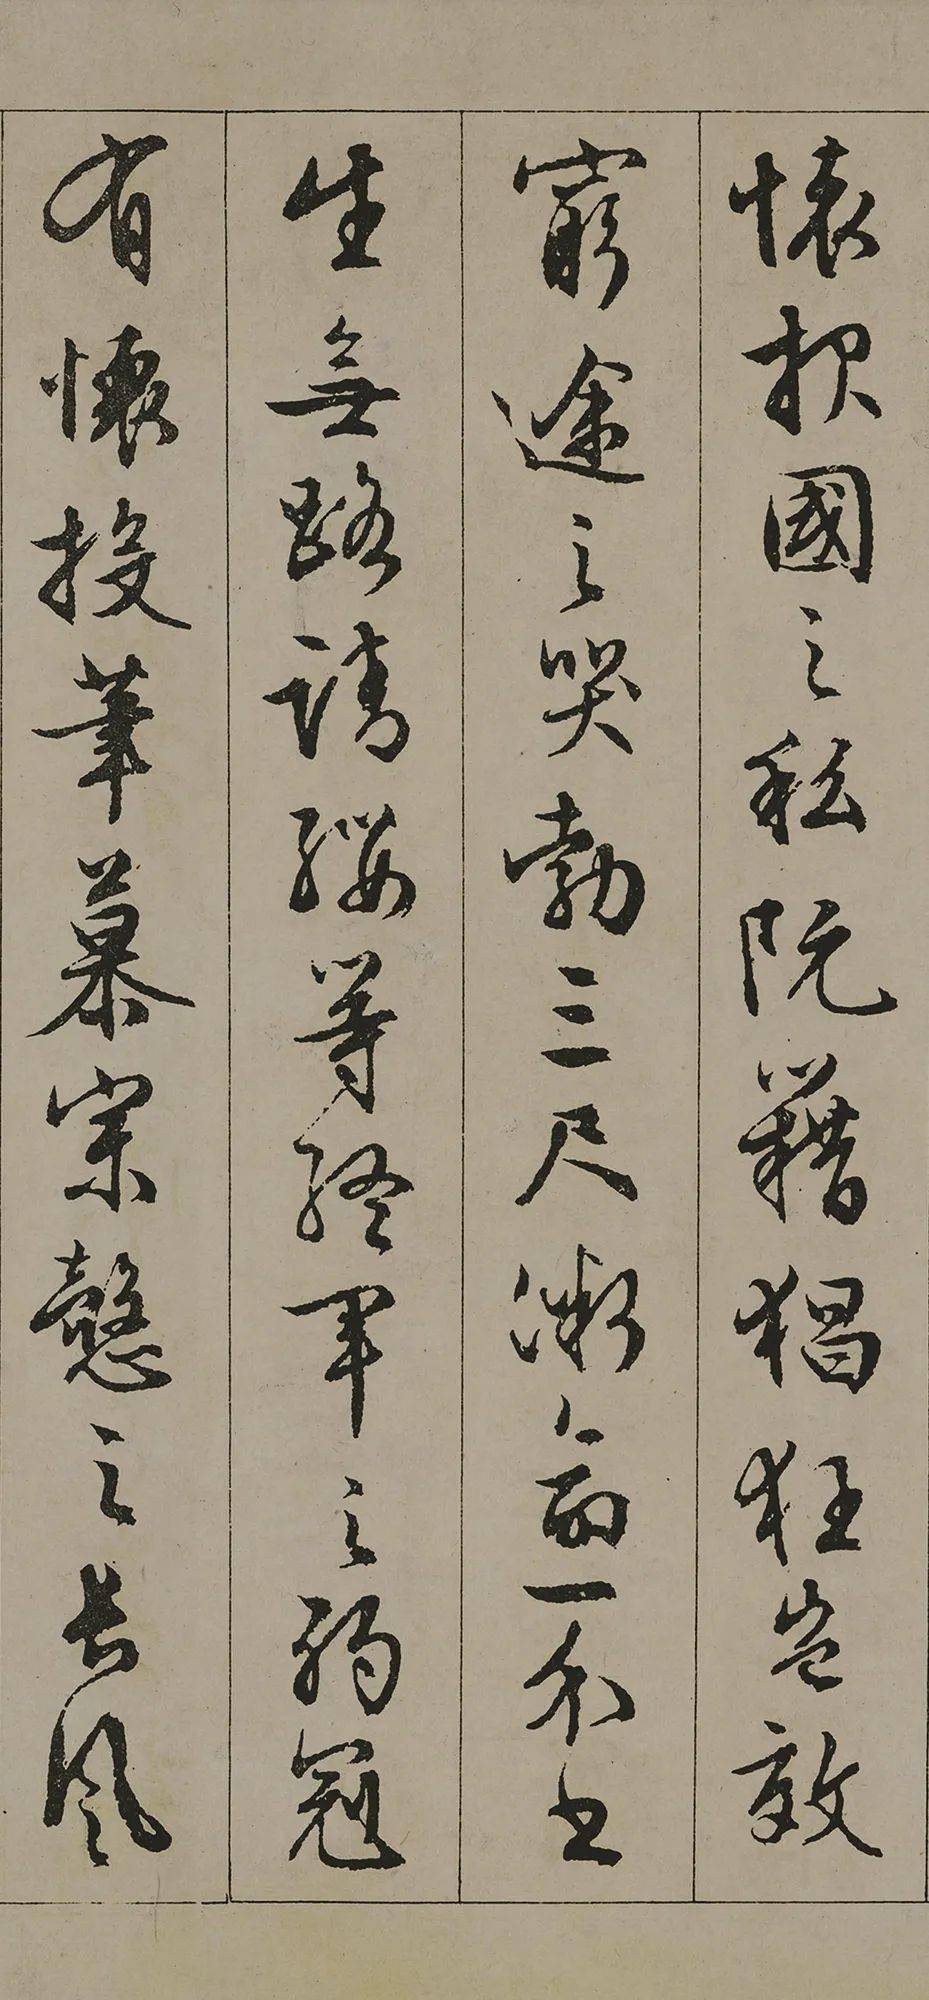 懷報國之私阮籍猖狂豈效
窮途之哭勃三尺微命一介書
生無路請纓等終軍之弱冠
有懷投筆慕宗慤之長風